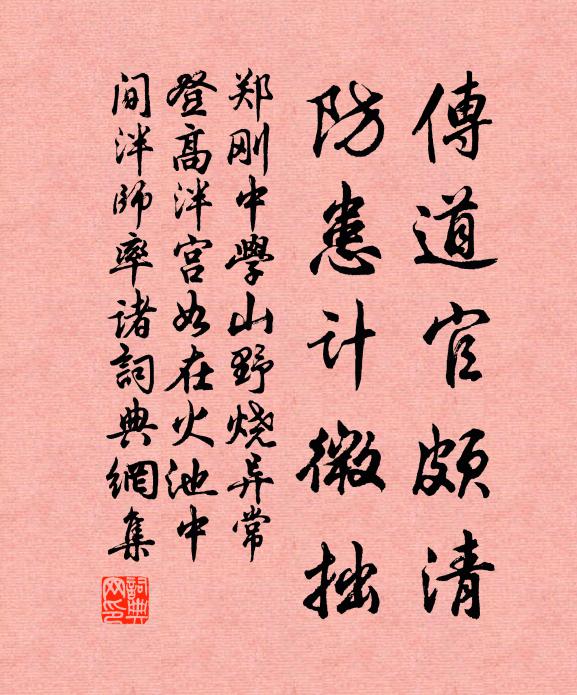 傳道官頗清
防患計微拙
郑刚中學山野烧异常
登高泮宫如在火池中
间泮師率诸詞典網集
詞典網印